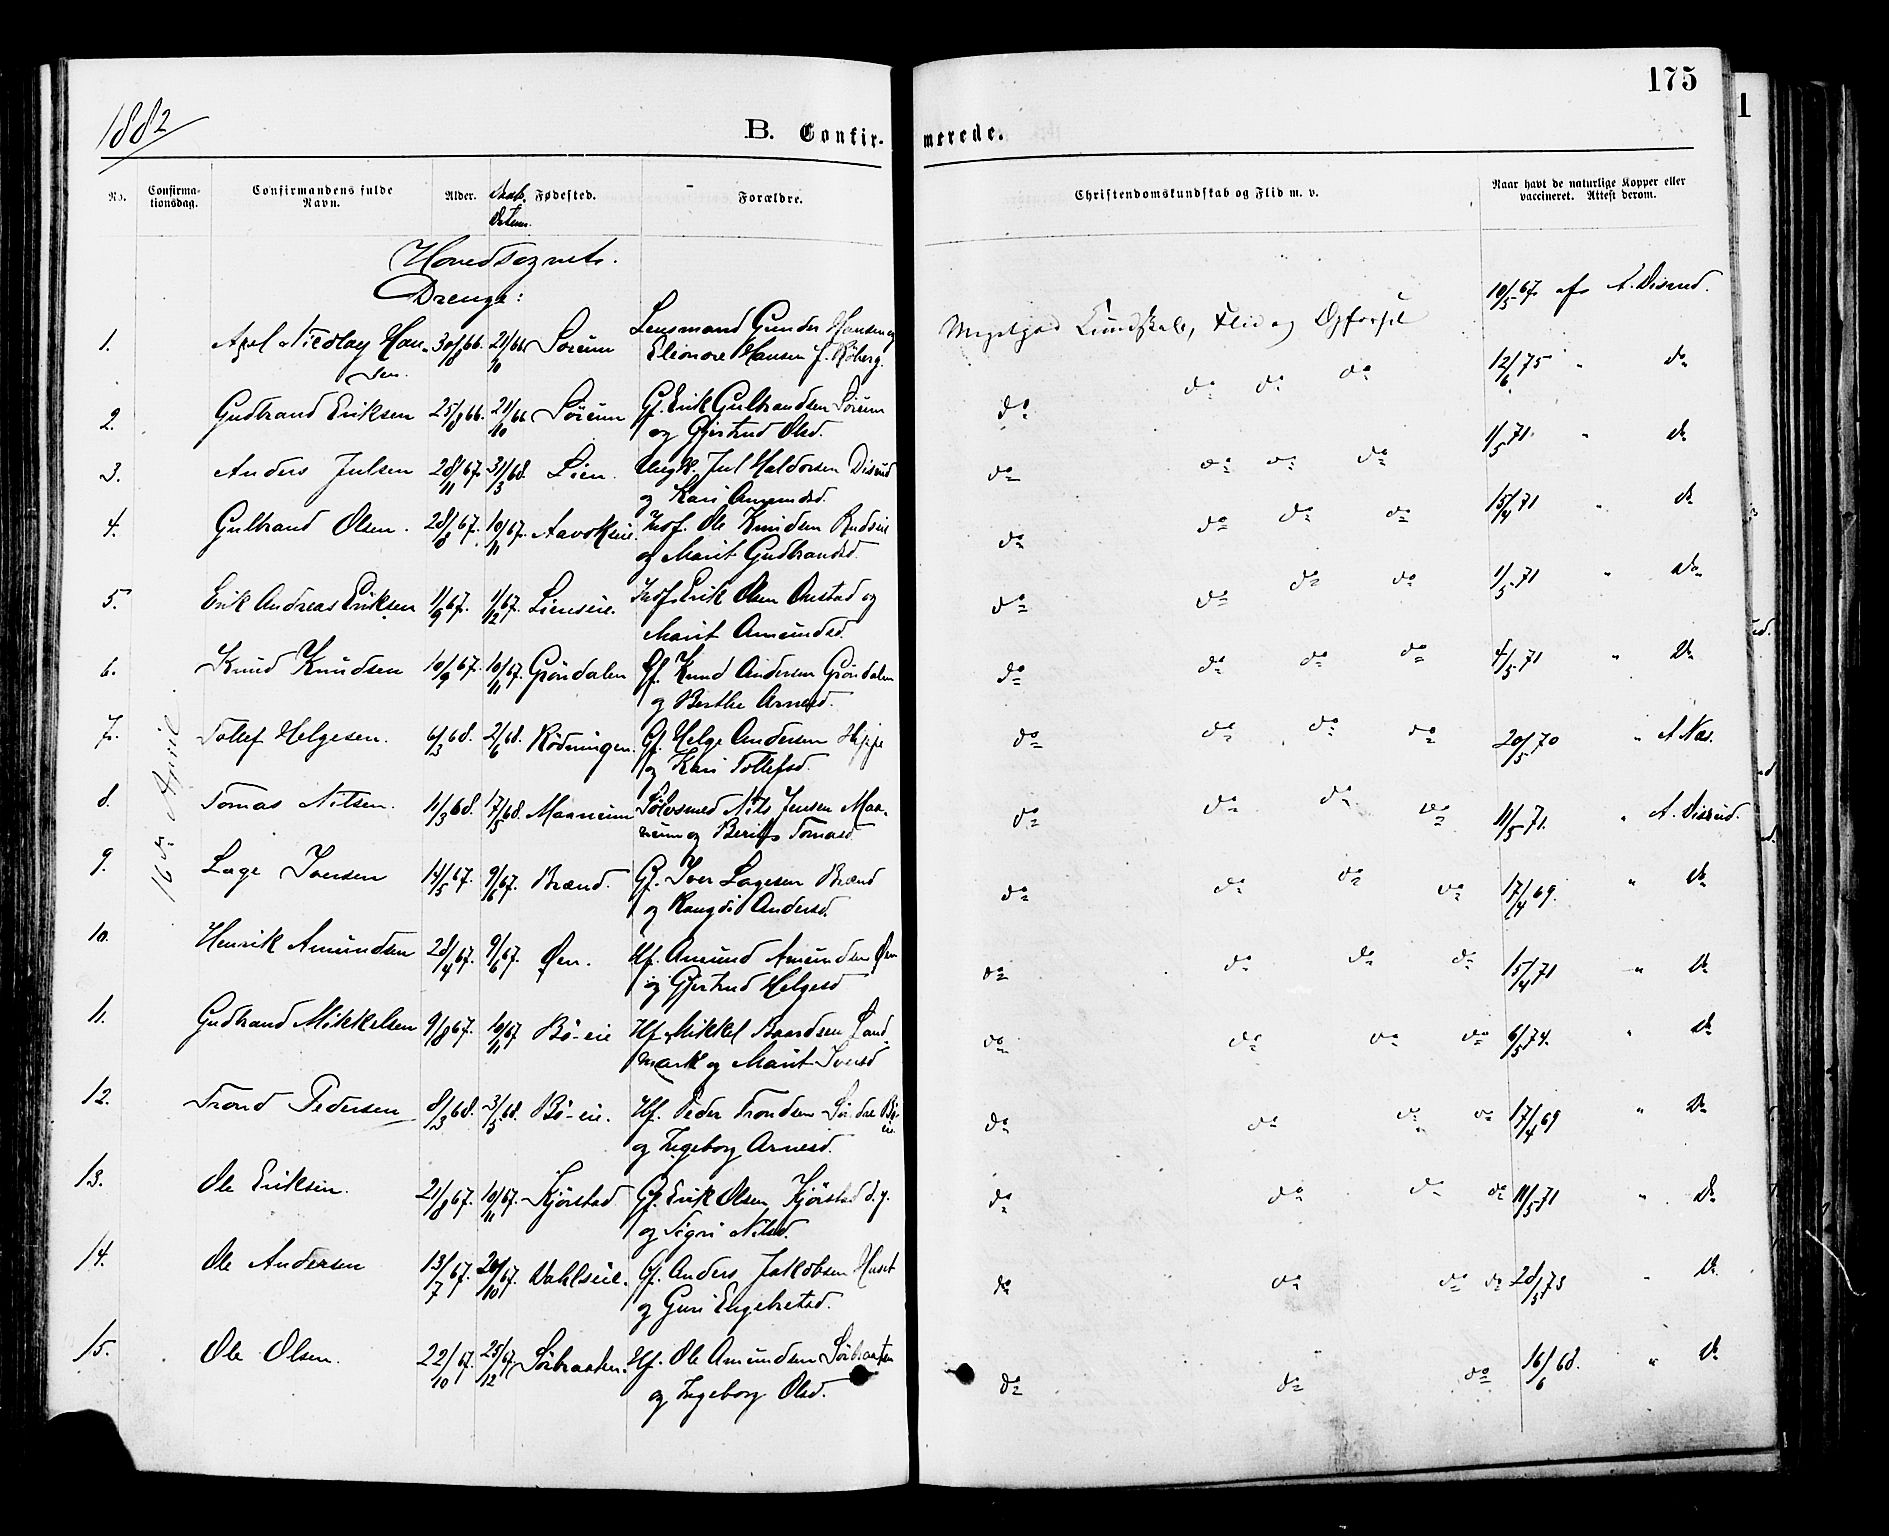 175
1
1882
B. Confir- merede.
No. Confirma- tionsdag. Confirmandens fulde Navn. Alder. Fødested. Forældre. Christendomskundskab og Flid m. v. Naar havt de naturlige Kopper eller vaccineret. Attest derom.
Hovedsognets.
Drenge:
16de April
1. Axel Nicolay Han- 30/8 66. 21/10 66 Sørum Lensmand Gunder Hansen og Megetgod Kundskab, Flid og Opførsel 10/5 67 af A. Disrud.
sen. Eleonore Hansen f. Røberg.
2. Gudbrand Eriksen 25/8 66. 21/10 66 Sørum Gf. Erik Gulbrandsen Sørum do do do do 12/6 75 " do
og Gjertrud Olsd.
3. Anders Julsen 28/11 67. 31/3 68. Lien. Ungk. Jul Haldorsen Disrud do do do do 1/5 71. " do
og Kari Amundsd.
4. Gulbrand Olsen. 28/8 67. 10/11 67. Aavokseie. Inds. Ole Knudsen Rudseie do do do do 15/4 71 " do
og Marit Gudbrandsd.
5. Erik Andreas Eriksen 1/9 67. 1/12 67. Lienseie. Inds Erik Olsen Onstad og do do do do 1/5 71 " do
Marit Amundsd.
6. Knud Knudsen 10/9 67. 10/11 67. Grøndalen Gf. Knud Andersen Grøndalen do do do do 4/5 71 " do
og Berthe Arnesd.
7. Tollef Helgesen. 6/3 68. 2/6 68. Rødningen. Gf. Helge Andersen do do do do 20/5 70 " A Næs.
og Kari Tollefsd.
8. Tomas Nilsen. 11/3 68. 17/5 68. Maanum Sølvsmed Nils Jensen Maa- do do do do 11/5 71. " A. Disrud.
num og Berit Tomasd.
9. Lage Iversen 14/5 67. 9/6 67. Brænd. Gf. Iver Lagesen Brænd do do do do 17/4 69. " do
og Rangdi Andersd.
10. Henrik Amundsen 28/4 67. 9/6 67. Øen. Hf. Amund Amundsen Øen do do do do 15/4 71 " do
og Gjertrud Helgesd
11. Gudbrand Mikkelsen 9/8 67. 10/11 67 Bø-eie Hf. Mikkel Baardsen Sand- do do do do 6/5 74. " do
mark og Marit Iversd
12. Trond Pedersen 8/3 68. 3/5 68. Bø-eie. Hf. Peder Trondsen Søndre Bø- do do do do 17/4 69 " do
eie
og Ingeborg Arnesd.
13. Ole Eriksen. 21/8 67. 10/11 67. Kjørstad Gf. Erik Olsen Kjørstad d.y. do do do do 11/5 71 " do
og Sigri Nilsd.
14. Ole Andersen 13/7 67. 20/10 67. Dahlseie. Gf. Anders Jakobsen Huset do do do do 28/5 73 " do
og Guri Engebretsd.
15. Ole Olsen. 22/10 67. 25/12 67 Sørbraaten. Hf. Ole Amundsen Sørbraaten do do do 16/6 68. " do
og Ingeborg Olsd.